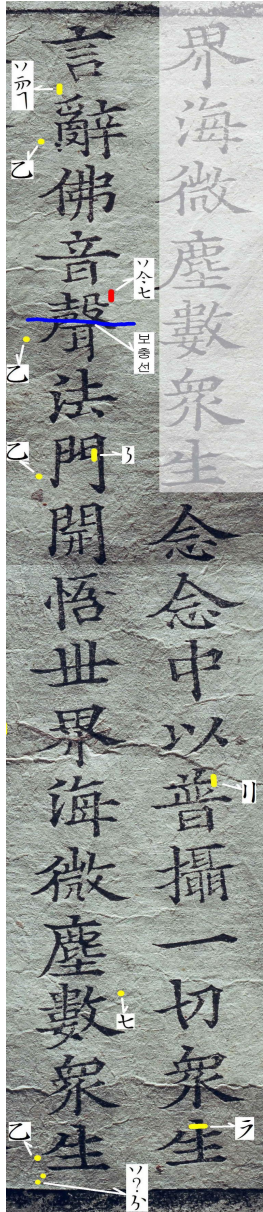 界海微塵數衆生念念中以普攝一切衆生
言辭佛音聲法門開悟世界海微塵數衆生
リ
ラ
ソ
乙
ソ令七
보충선
乙
乙
七
乙
ソ?